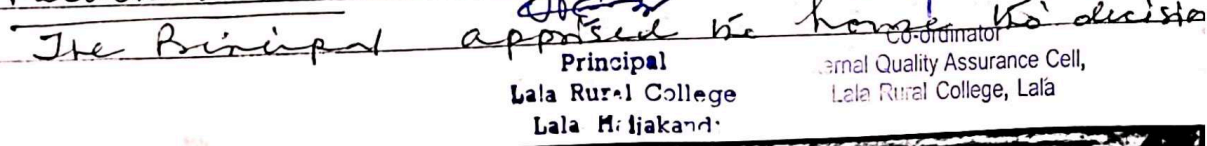 The Principal apprised the home the decision
Principal
Lala Rural College
Lala
Co-ordinator
ernal Quality Assurance Cell,
Lala Rural College, Lala